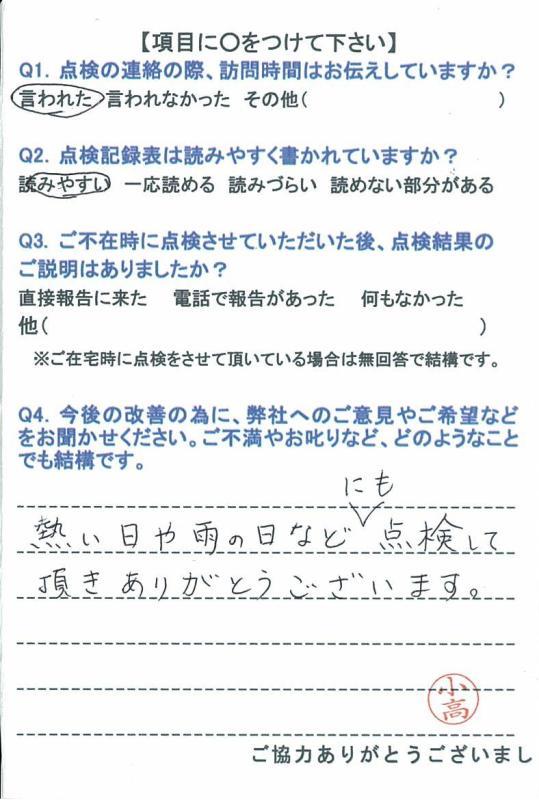 【項目に〇をつけて下さい】
Q1. 点検の連絡の際、訪問時間はお伝えしていますか？
言われた 言われなかった その他(　　　)
Q2. 点検記録表は読みやすく書かれていますか？
読みやすい 一応読める 読みづらい 読めない部分がある
Q3. ご不在時に点検させていただいた後、点検結果の
ご説明はありましたか？
直接報告に来た 電話で報告があった 何もなかった
他(　　　)
※ご在宅時に点検をさせて頂いている場合は無回答で結構です。
Q4. 今後の改善の為に、弊社へのご意見やご希望など
をお聞かせください。ご不満やお叱りなど、どのようなこと
でも結構です。
にも
熱い日や雨の日など 点検して
頂きありがとうございます。
小高
ご協力ありがとうございまし